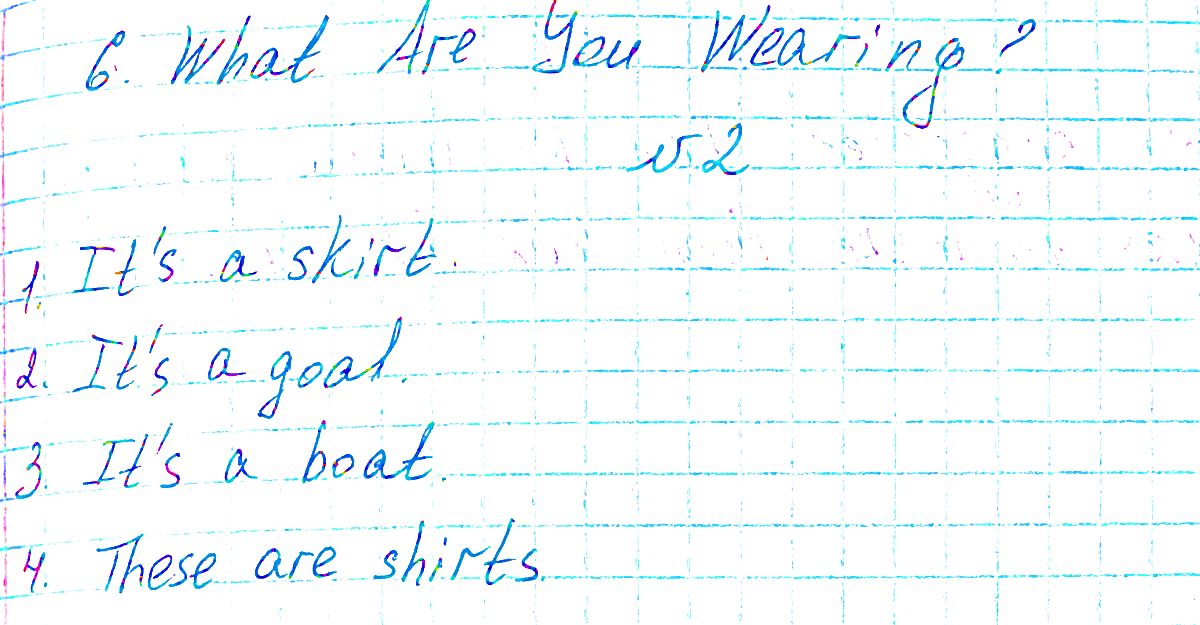 6. What Are You Wearing?
v. 2
1. It's a skirt.
2. It's a goal.
3. It's a boat.
4. These are shirts.